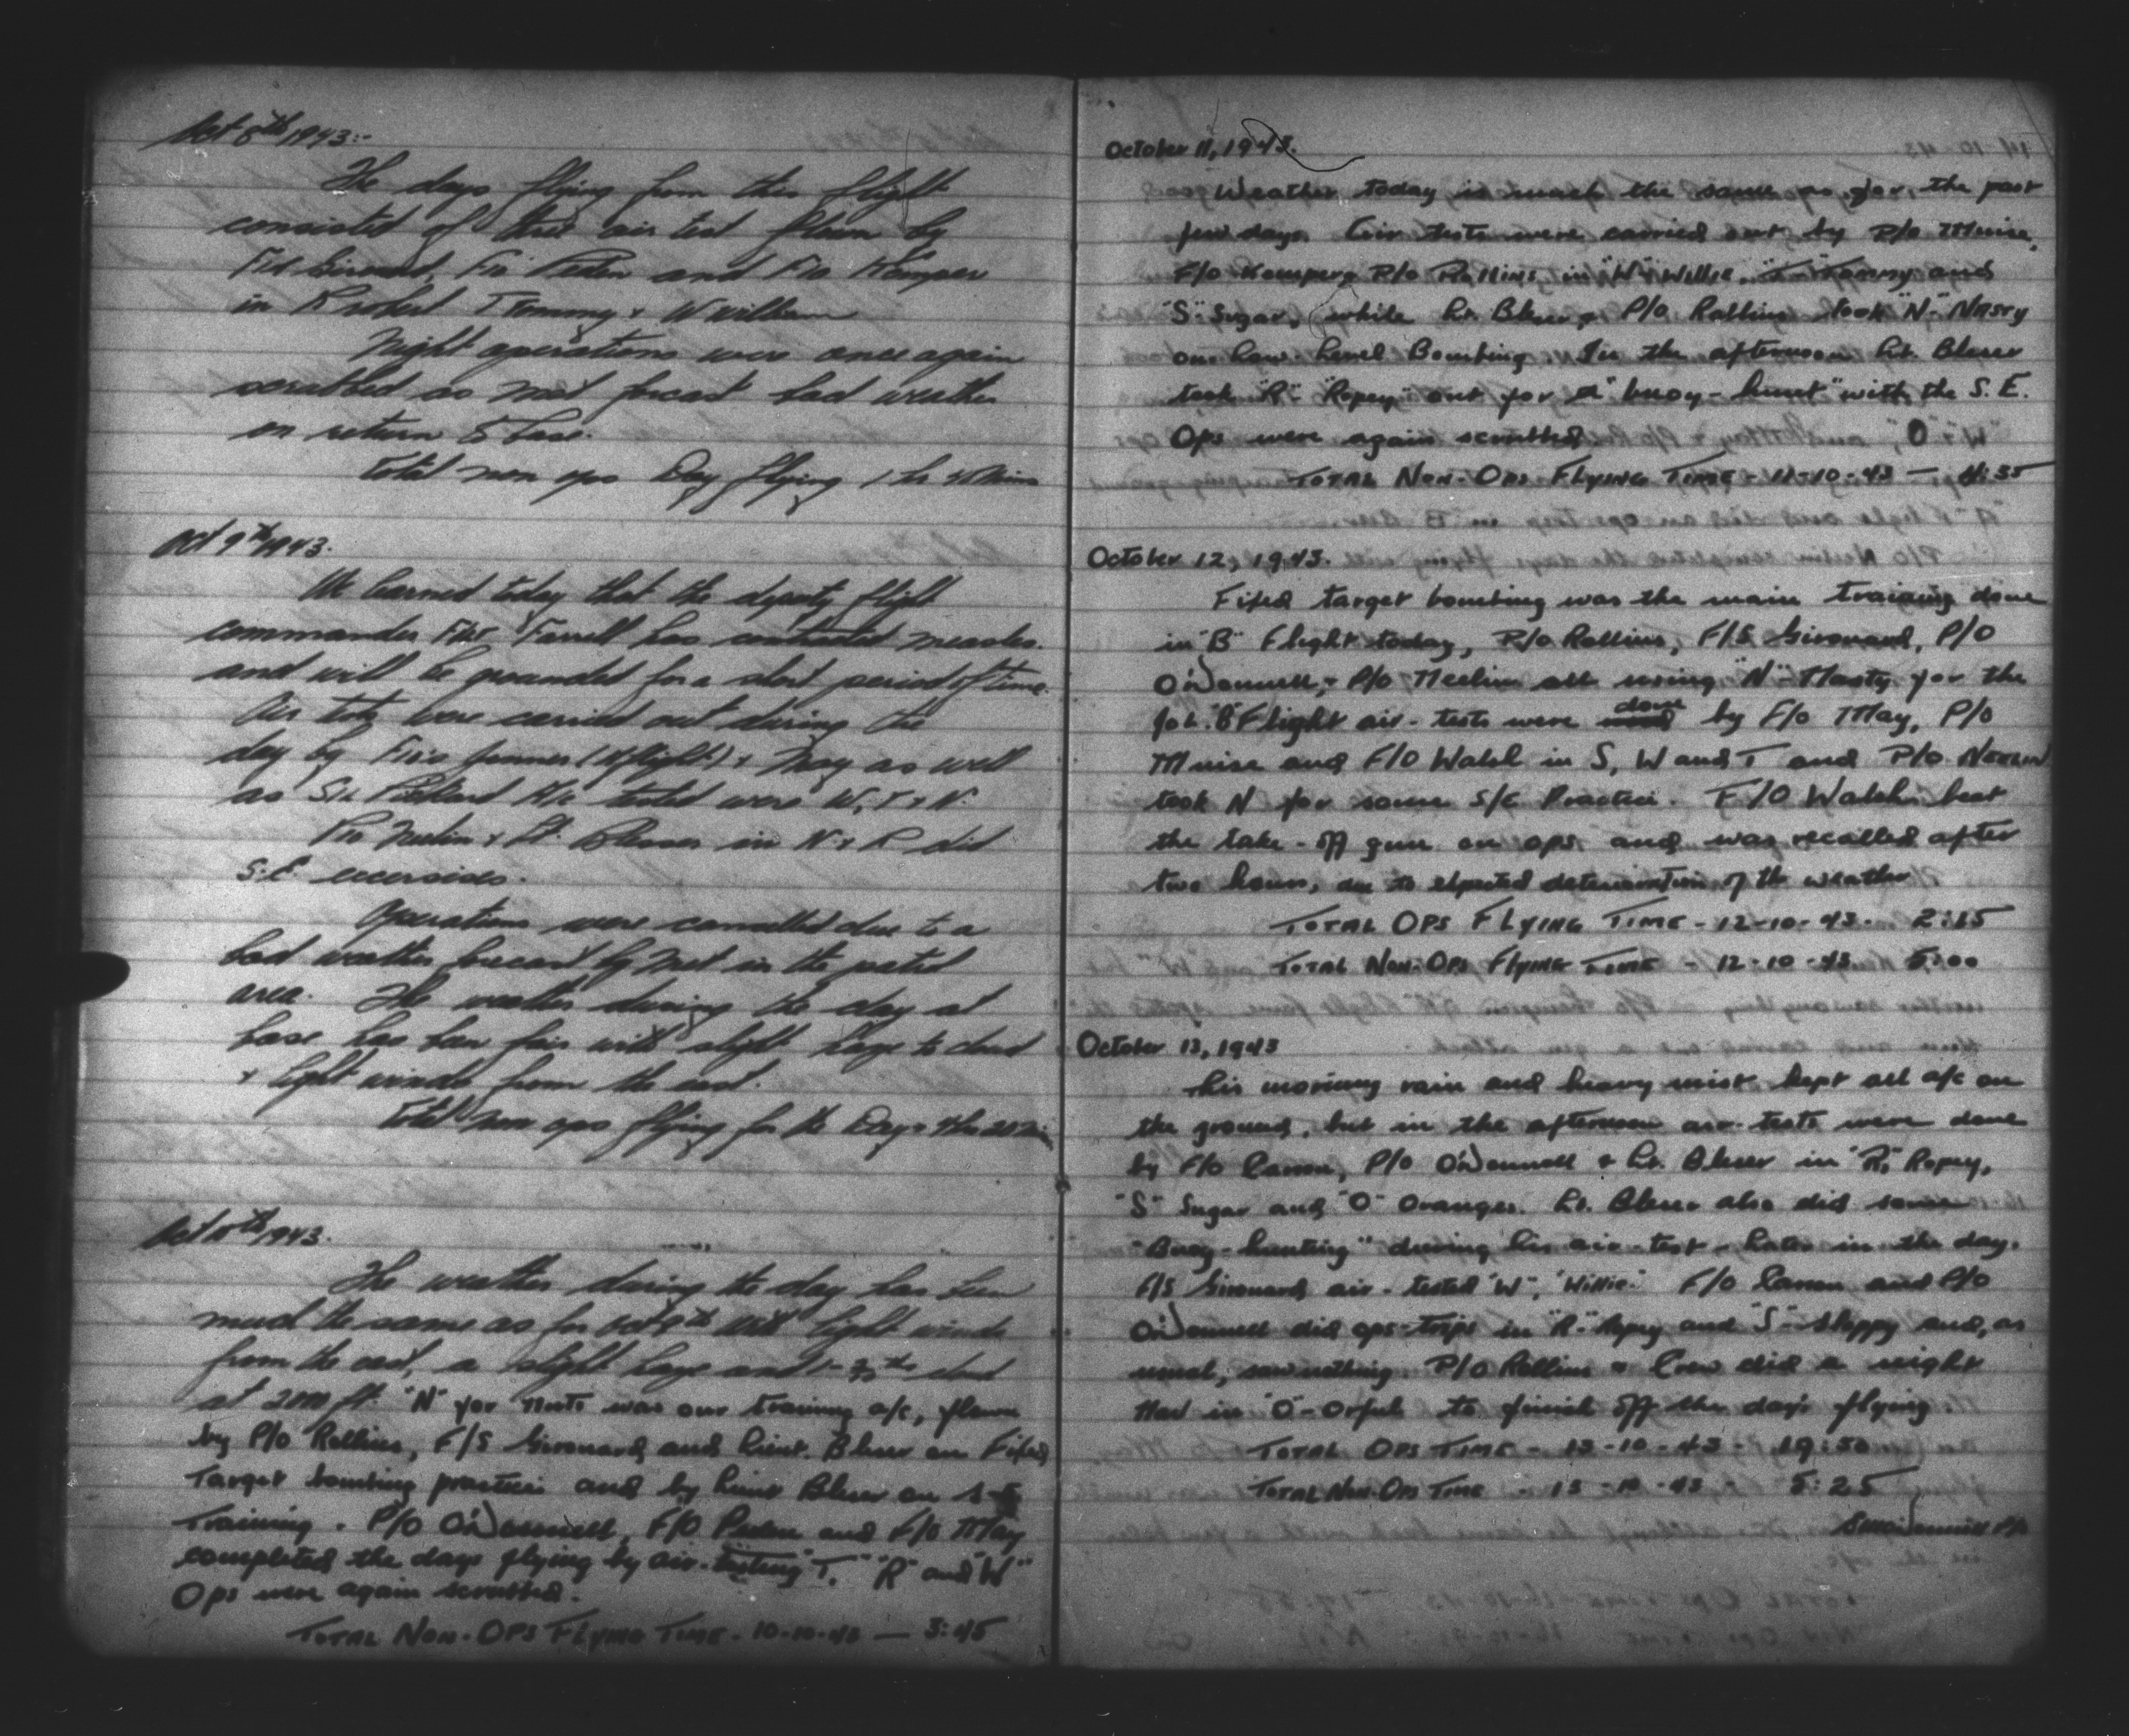 Oct 8th 1943:-
The days flying from this flight
consisted of three air test flown by
F/S Girouard, F/O Peden and F/O Kamper
in R robert T Tommy & W william
Night operations were once again
scrubbed as met forcast bad weather
on return to base.
Total non ops Day flying 1 hr
Oct 9th 1943.
We learned today that the deputy flight
commander F/Lt Farrell has contracted measles.
and will be grounded for a short period of time.
Air tests were carried out during the
day by F/O's (A flight) & May as well
as A/c tested were W, T & N.
P/O Neelin & Lt. Bleser in N & R did
S.E exercises.
Operations were cancelled due to a
bad weather forecast by Met in the patrol
area. The weather during the day at
base has been fair with slight haze to cloud
& light winds from the east.
Total non ops flying for the Day
Oct 10th 1943.
The weather during the day has been
much the same as for Oct 9th with light winds
from the east, a slight haze and cloud
at 2000 ft. "N" for Nuts was our training a/c, flown
by P/O Rollins, F/S Girouard and Lieut. Bleser on Fixed
Target bombing practice and by Lieut Bleser on S-E
Training. P/O O'Donnell, F/O Peden and F/O May
completed the days flying by air-testing "T," "R" and "W"
Ops were again scrubbed.
Total Non-Ops Flying Time - 10-10-43 — 3:45
October 11, 1943.
Weather today is much the same as for the past
few days. Air tests were carried out by P/O Muise,
F/O Kamper & P/O Rollins in "W" Willie, "T" Tommy and
"S" Sugar, while Lt. Bleser & P/O Rollins took "N" - Nasty
on Low-Level Bombing. In the afternoon Lt. Bleser
took "R" - "Ropey" out for a "buoy-hunt" with the S.E.
Ops were again scrubbed.
Total Non-Ops Flying Time - 11-10-43 — 4:35
October 12, 1943.
Fixed target bombing was the main training done
in "B" Flight today, P/O Rollins, F/S Girouard, P/O
O'Donnell, & P/O Neelin all using "N" - Nasty for the
job. "B" Flight air-tests were done by F/O May, P/O
Muise and F/O Walsh in S, W and T and P/O Neelin
took N for some S/E Practice. F/O Walsh beat
the take-off gun on ops and was recalled after
two hours, due to expected deterioration of the weather
Total Ops Flying Time - 12-10-43.
Total Non-Ops Flying Time - 12-10-43 5:00
October 13, 1943
This morning rain and heavy mist kept all a/c on
the ground, but in the afternoon air-tests were done
by F/O P/O O'Donnell & Lt. Bleser in "R," Ropey,
"S" Sugar and "O" Oranges. Lt. Bleser also did some
"Buoy-hunting" during his air-test. Later in the day.
F/S Girouard air-tested "W", "Willie." F/O and P/O
O'Donnell did ops-trips in "R" - Ropey and "S" - Sloppy and, as
usual, saw nothing. P/O Rollins & Crew did a night
Nav in "O" - Orful to finish off the day's flying.
Total Ops Time - 13-10-43 - 19:50
Total Non-Ops Time - 13-10-43 - 5:25